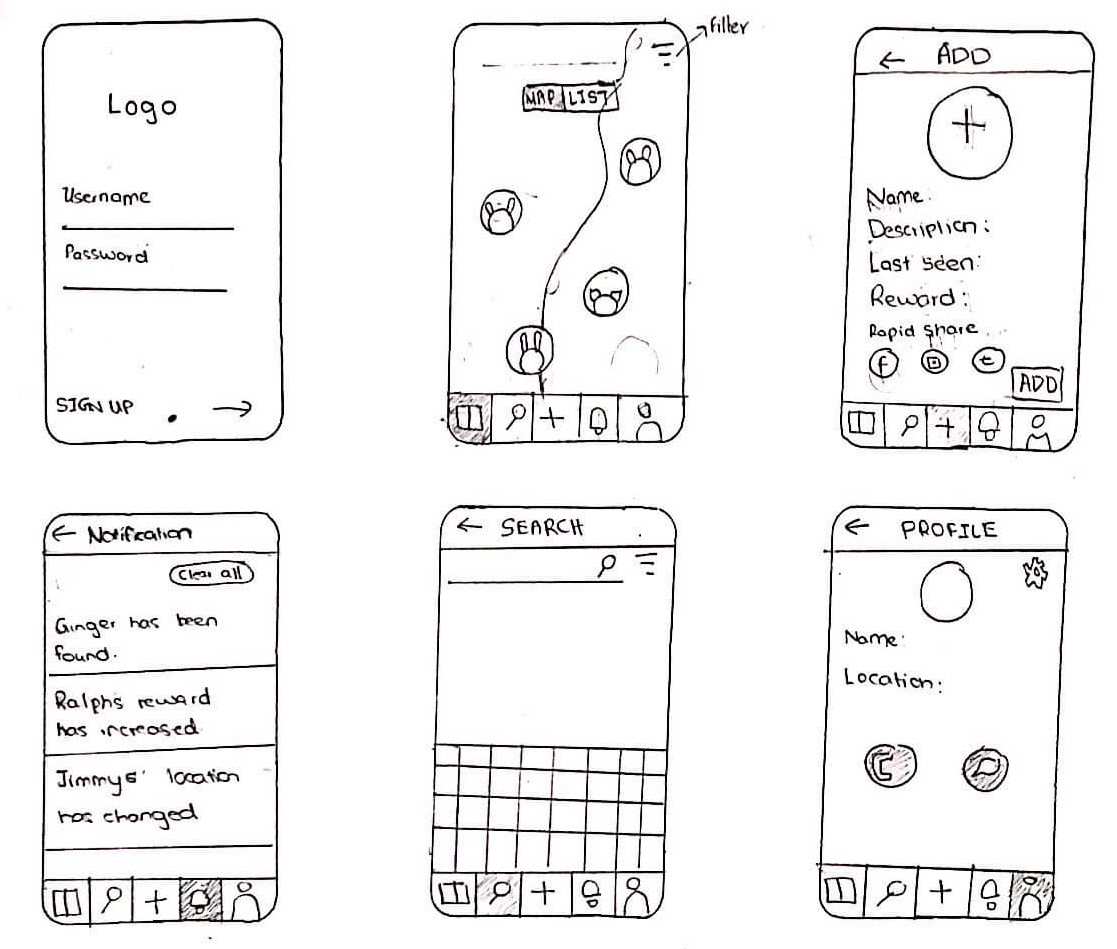 Logo
Username
Password
SIGN UP
filter
MAP LIST
← ADD
Name:
Description:
Last seen:
Reward:
Rapid share
f t
ADD
← Notification
Clear all
Ginger has been
found.
Ralphs reward
has increased
Jimmys' location
has changed
← SEARCH
← PROFILE
Name:
Location: